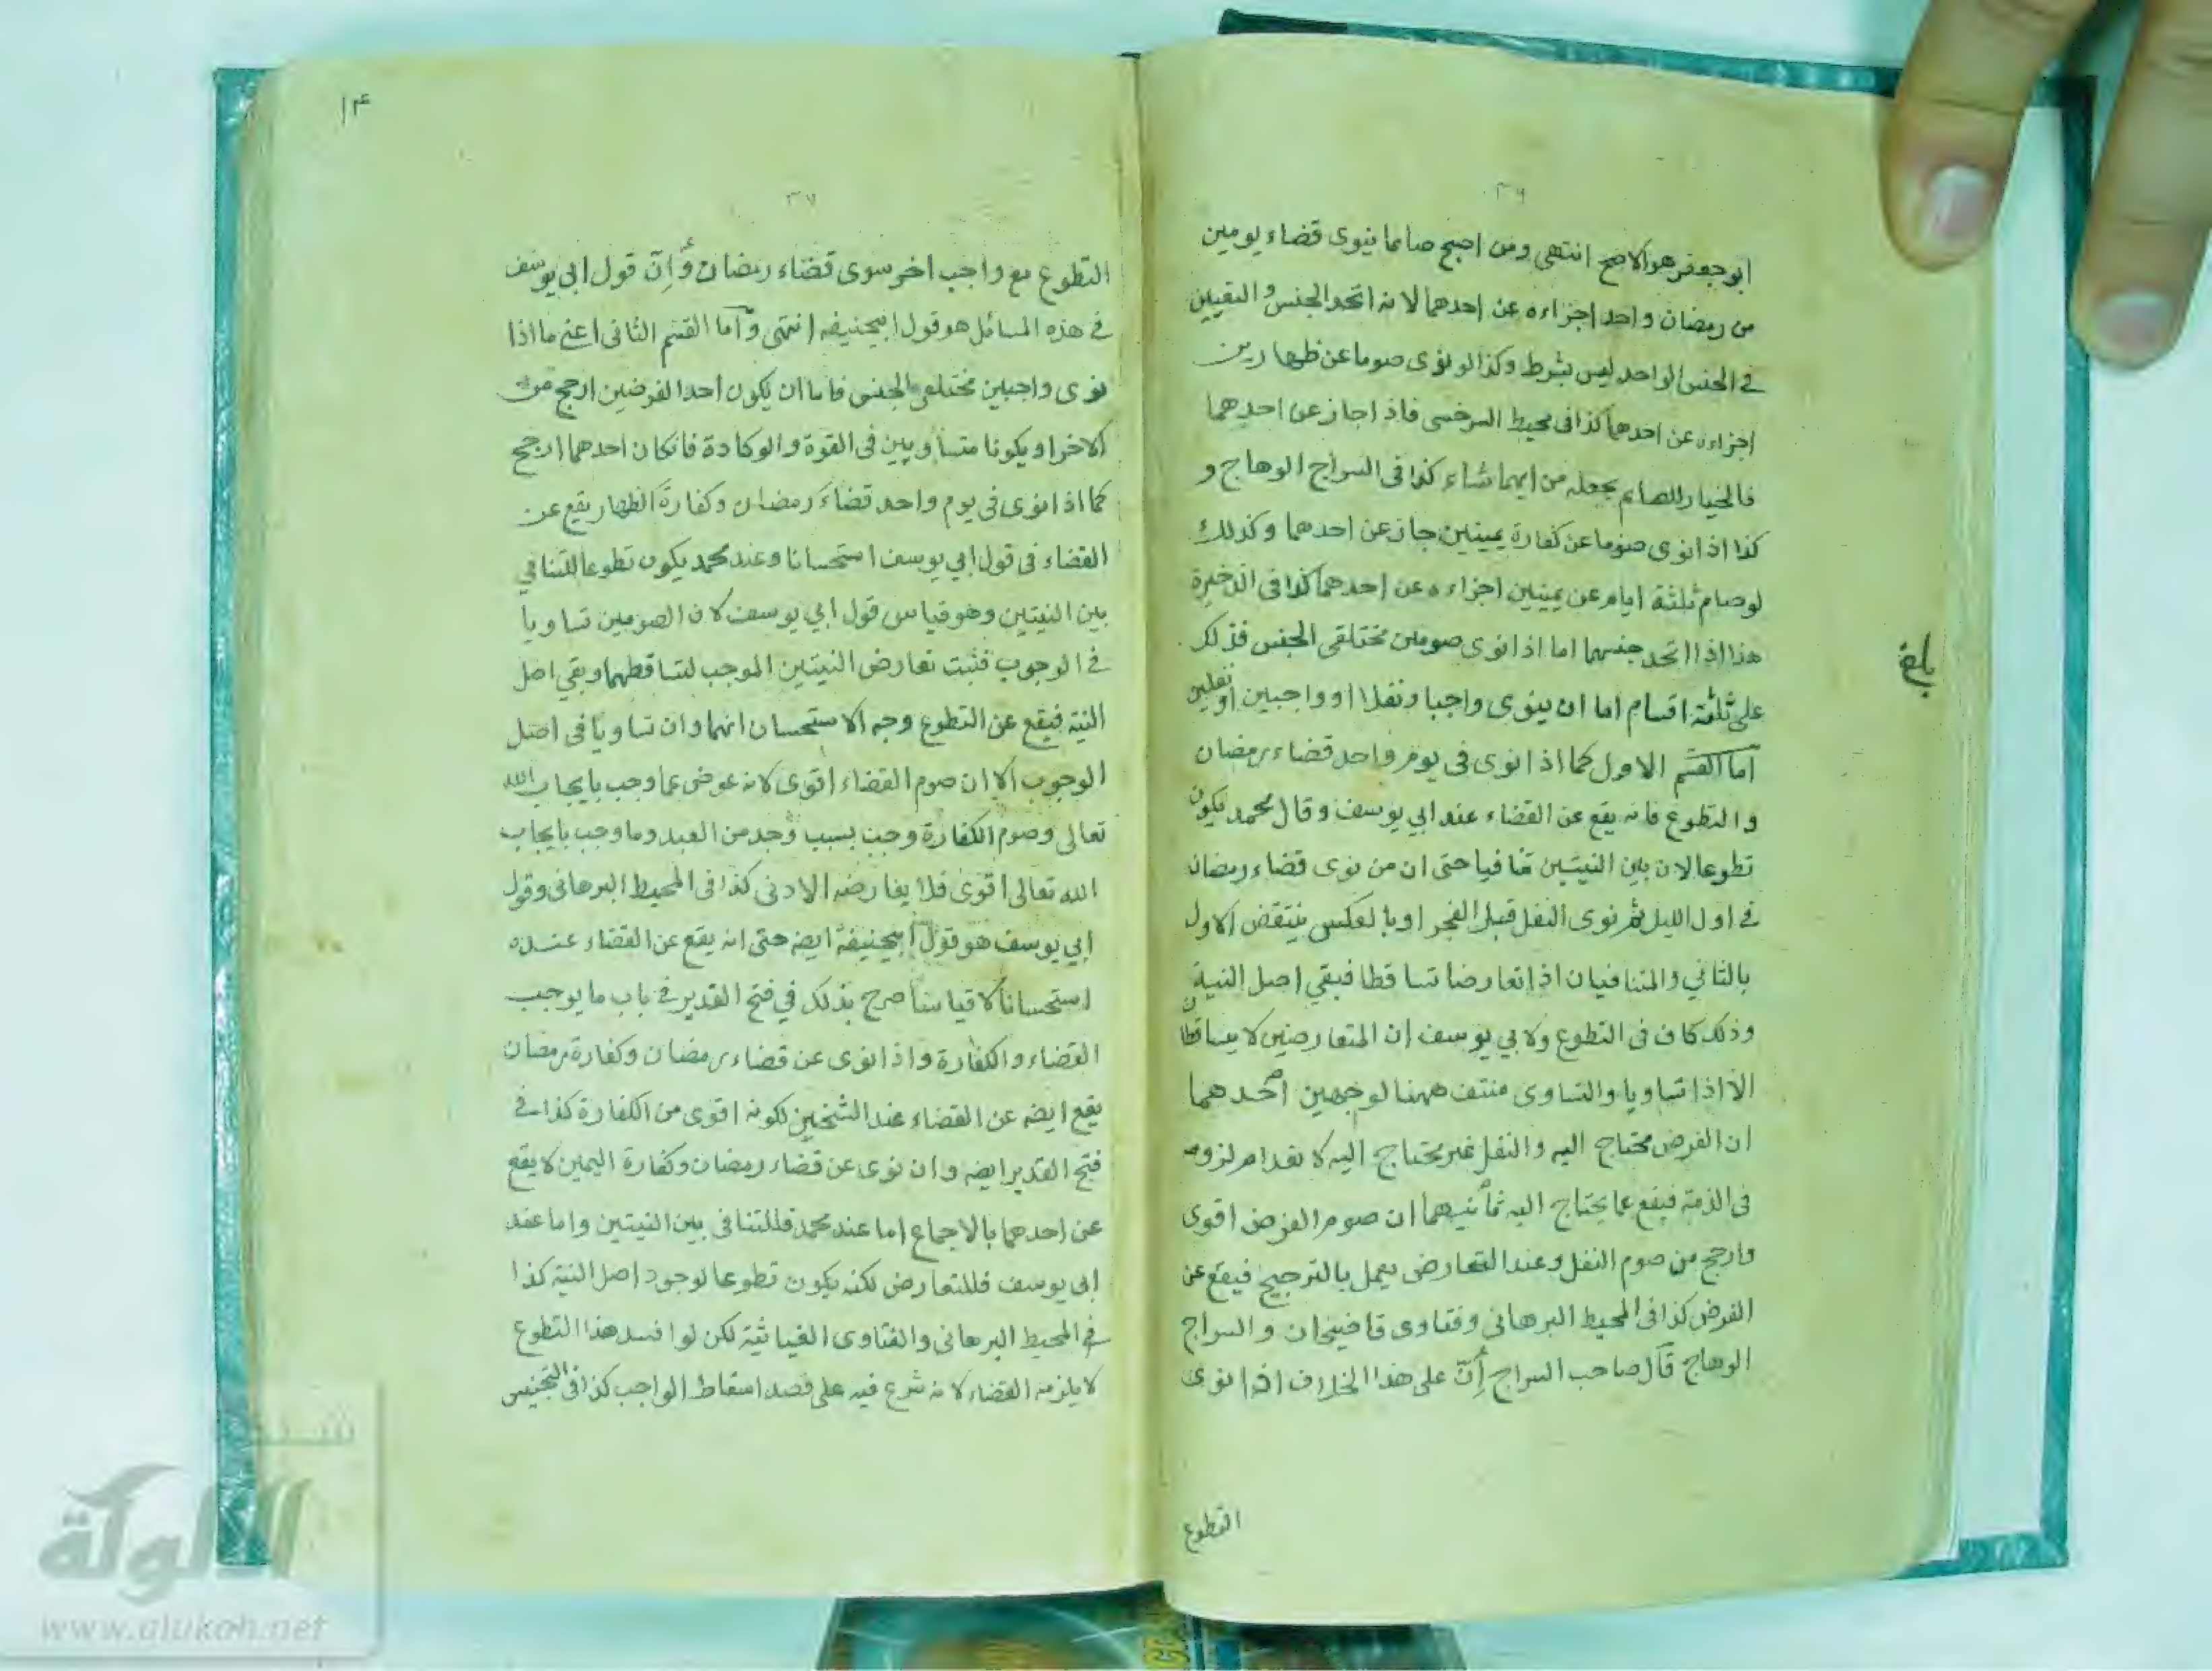 ٣٦
ابو جعفر هو الاصح انتهى ومن اصبح صائما ينوى قضاء يومين
من رمضان واحد اجزاءه عن احدهما لانه اتحد الجنس و التعيين
في الجنس الواحد ليس بشرط وكذا لو نوى صوما عن ظهارين
اجزاءه عن احدهما كذا فى محيط السرخسى فاذا جاز عن احدهما
فالخيار للصائم يجعله من ايهما شاء كذا فى السراج الوهاج و
كذا اذا نوى صوما عن كفارة يمينين جاز عن احدهما وكذلك
لو صام ثلثة ايام عن يمينين اجزاءه عن احدهما كذا فى الذخيرة
هذا اذا اتحد جنسهما اما اذا نوى صومين مختلفى الجنس فذلك
على ثلثة اقسام اما ان ينوى واجبا ونفلا او واجبين او نفلين
اما القسم الاول كما اذا نوى فى يوم واحد قضاء رمضان
والتطوع فانه يقع عن القضاء عند ابي يوسف وقال محمد يكون
تطوعا لان بين النيتين تنافيا حتى ان من نوى قضاء رمضان
في اول الليل ثم نوى النفل قبل الفجر او بالعكس ينتقض الاول
بالثاني والمتنافيان اذا تعارضا تساقطا فبقي اصل النية
وذلك كاف فى التطوع ولابي يوسف ان المتعارضين لا يتساقطان
الا اذا تساويا والتساوى منتف ههنا لوجهين احدهما
ان الفرض محتاج اليه والنفل غير محتاج اليه لانعدام لزومه
فى الذمة فيقع عما يحتاج اليه ثانيهما ان صوم الفرض اقوى
وارجح من صوم النفل وعند التعارض يعمل بالترجيح فيقع عن
الفرض كذا فى المحيط البرهاني وفتاوى قاضيخان والسراج
الوهاج قال صاحب السراج إنّ على هذا الخلاف اذا نوى
التطوع
بلغ
١٤
٣٧
التطوع مع واجب اخر سوى قضاء رمضان وأنّ قول ابي يوسف
في هذه المسائل هو قول ابيحنيفه انتهى واما القسم الثانى اعنى ما اذا
نوى واجبين مختلفى الجنس فاما ان يكون احد الفرضين ارجح من
الاخر او يكونا متساويين فى القوة والوكادة فان كان احدهما ارجح
كما اذا نوى فى يوم واحد قضاء رمضان وكفارة الظهار يقع عن
القضاء فى قول ابي يوسف استحسانا وعند محمد يكون تطوعا للتنافي
بين النيتين وهو قياس قول ابي يوسف لان الصومين تساويا
في الوجوب فثبت تعارض النيتين الموجب لتساقطهما وبقي اصل
النية فيقع عن التطوع وجه الاستحسان انهما وان تساويا فى اصل
الوجوب الا ان صوم القضاء اقوى لانه عوض عما وجب بايجاب الله
تعالى وصوم الكفارة وجب بسبب وجد من العبد وما وجب بايجاب
الله تعالى اقوى فلا يعارضه الادنى كذا فى المحيط البرهانى وقول
ابي يوسف هو قول ابيحنيفة ايضه حتى انه يقع عن القضاء عنده
استحسانا لا قياسا صرح بذلك في فتح القدير في باب ما يوجب
القضاء والكفارة واذا نوى عن قضاء رمضان وكفارة رمضان
يقع ايضه عن القضاء عند الشيخين لكونه اقوى من الكفارة كذا في
فتح القدير ايضه وان نوى عن قضاء رمضان وكفارة اليمين لا يقع
عن احدهما بالاجماع اما عند محمد فللتنافى بين النيتين واما عند
ابى يوسف فللتعارض لكنه يكون تطوعا لوجود اصل النية كذا
في المحيط البرهانى والفتاوى الغياثية لكن لو افسد هذا التطوع
لا يلزمه القضاء لانه شرع فيه على قصد اسقاط الواجب كذا فى التجنيس
شبكة
الالوكة
www.alukah.net